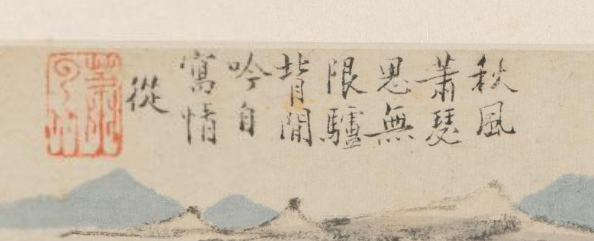 秋風
蕭瑟
思無
限驢
背閒
吟自
寫情
從